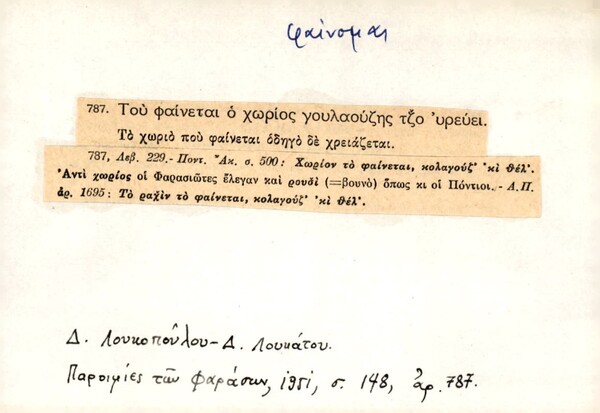 φαίνομαι
787. Τοῦ φαίνεται ὁ χωρίος γουλαούζης τζ̌ο ᾿υρεύει.
Τὸ χωριὸ ποὺ φαίνεται ὁδηγὸ δὲ χρειάζεται.
787, Λεβ. 229.- Ποντ. Ἄκ. σ. 500: Χωρίον τὸ φαίνεται, κολαγούζ᾿ ᾿κὶ θέλ᾿.
Ἀντὶ χωρίος οἱ Φαρασιῶτες ἔλεγαν καὶ ρουσὶ (=βουνὸ) ὅπως κι οἱ Πόντιοι. - Α.Π.
ἀρ. 1695: Τὸ ραχὶν τὸ φαίνεται, κολαγούζ᾿ ᾿κὶ θέλ᾿.
Δ. Λουκοπούλου - Δ. Λουκάτου.
Παροιμίες τῶν Φαράσων, 1951, σ. 148, ἀρ. 787.